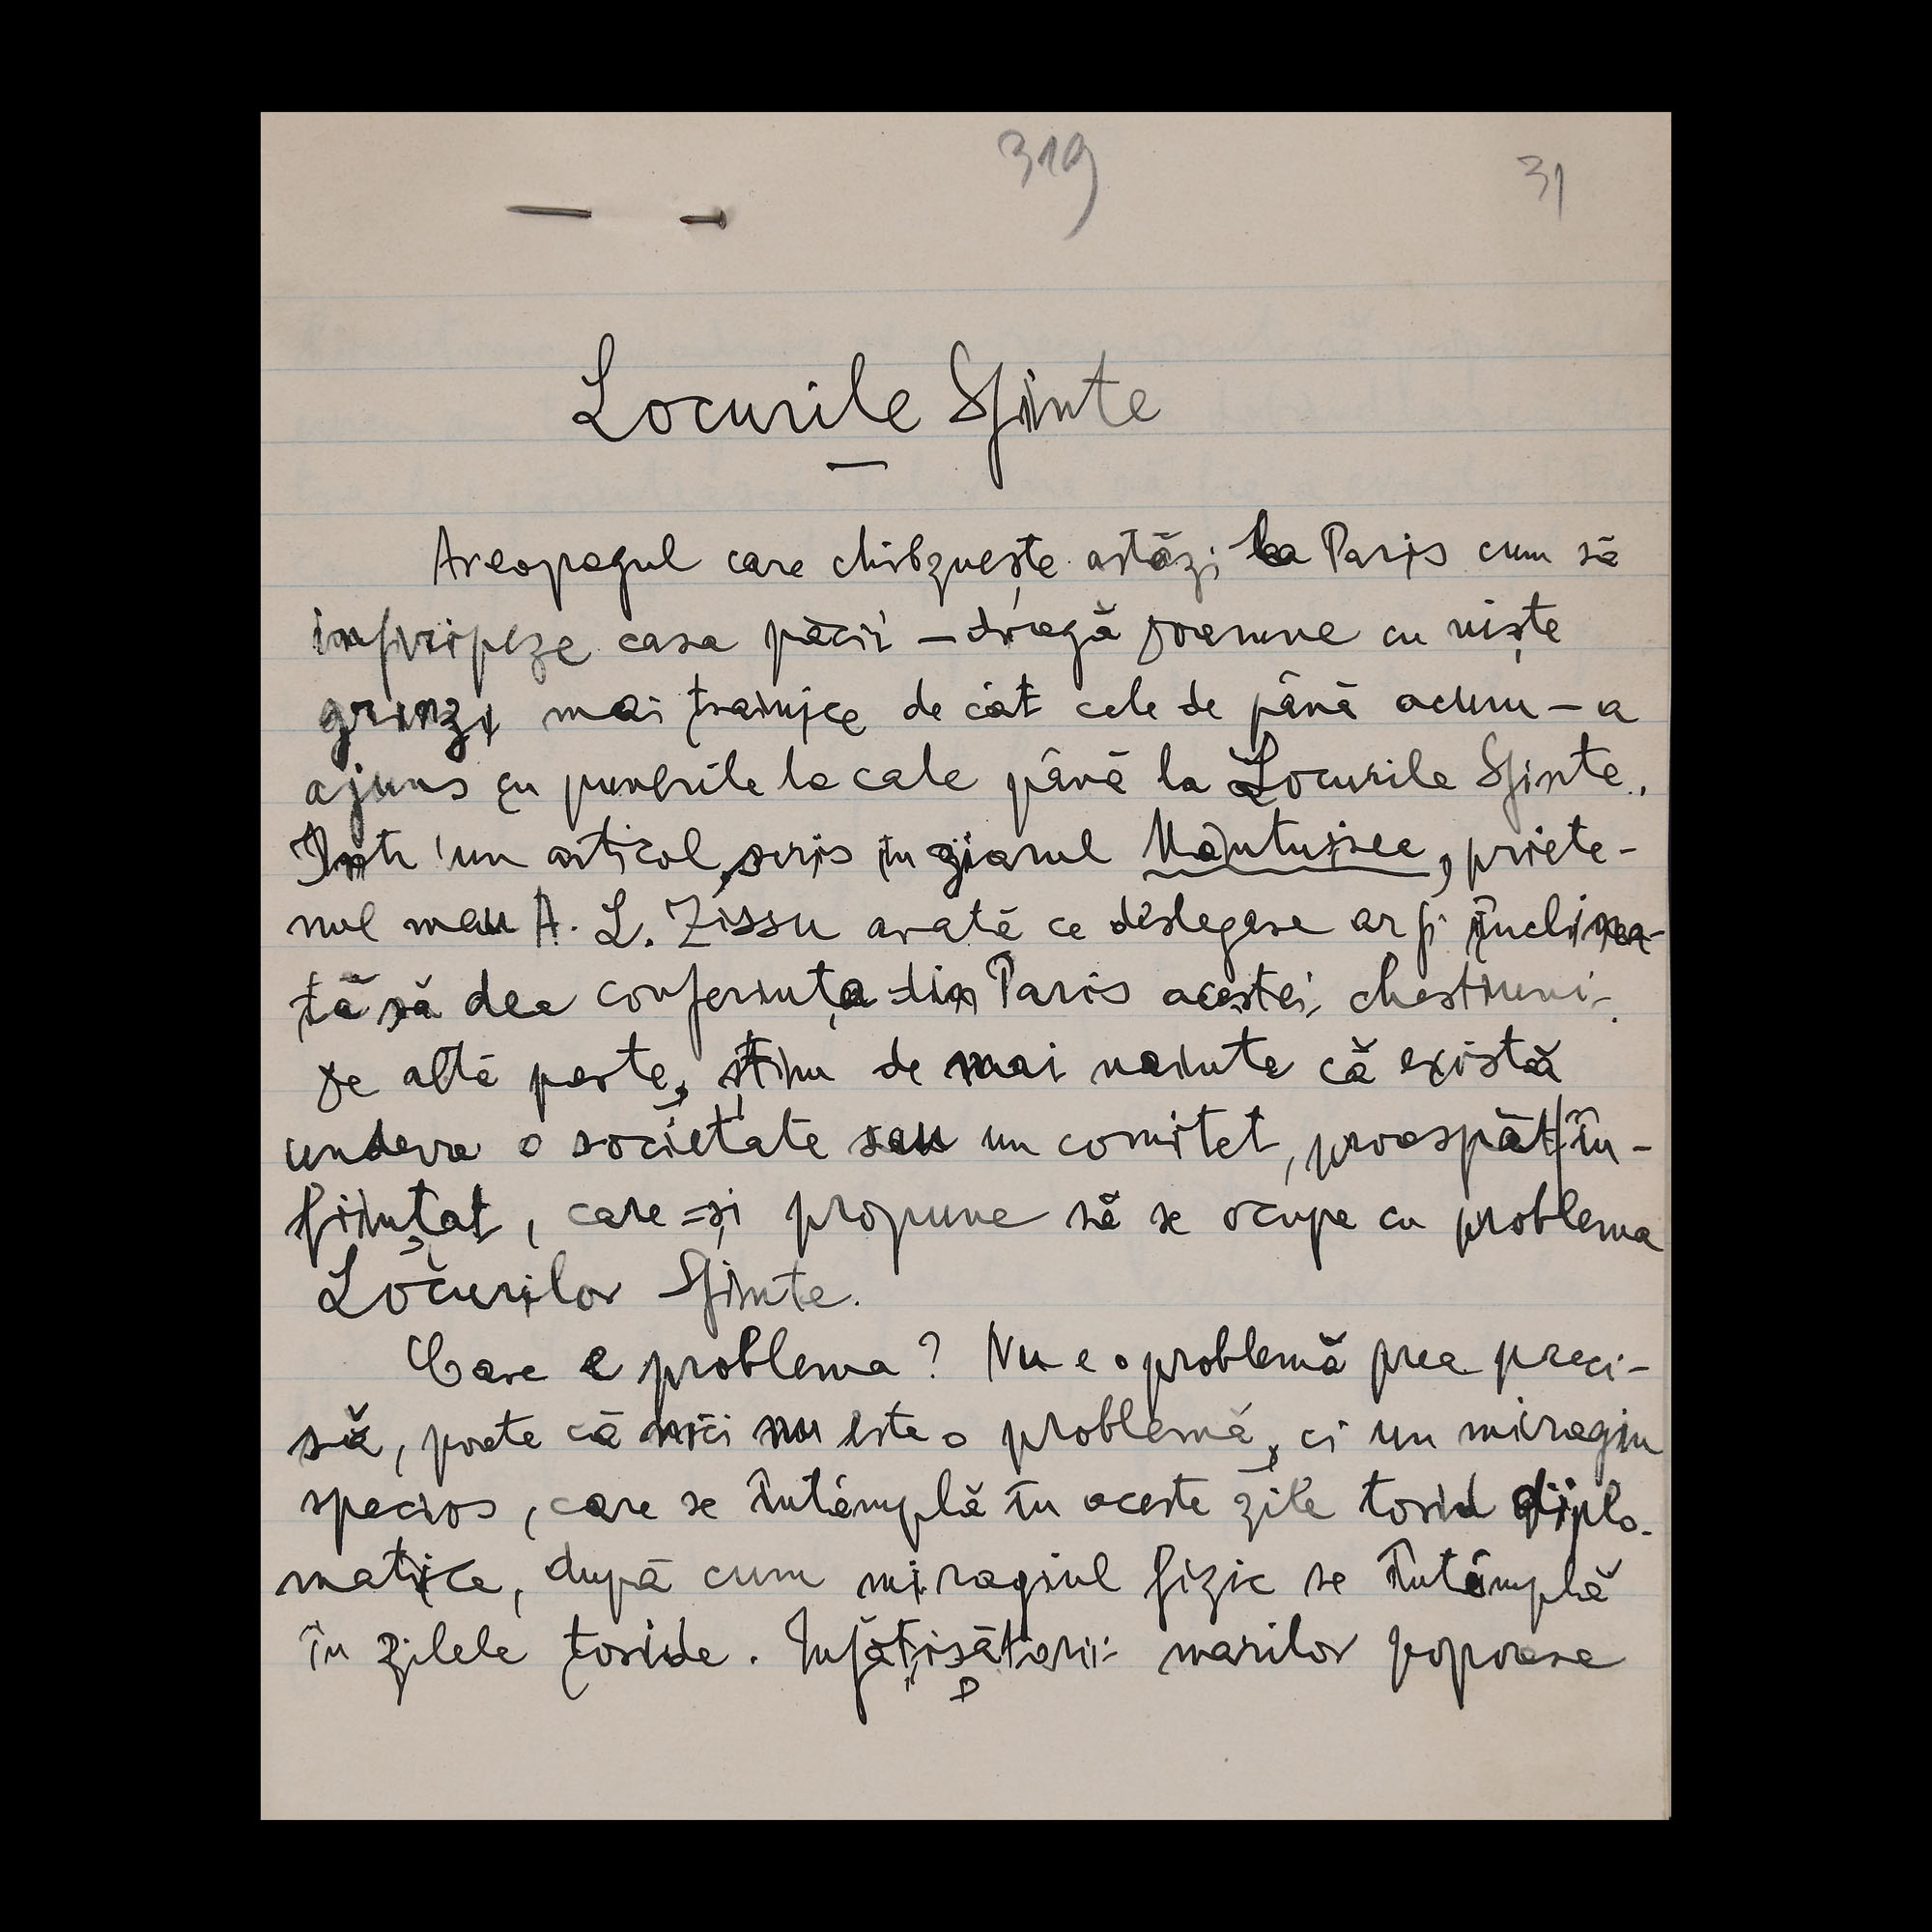 319
31
Locurile Sfinte
Areopagul care chibzuește astăzi la Paris cum să
înfiripeze casa păcii — dragă Doamne cu niște
grinzi mai trainice de cât cele de până acum — a
ajuns cu punerile la cale până la Locurile Sfinte.
Intr'un articol, scris în ziarul Mântuirea, priete-
nul meu A. L. Zissu arată ce deslegare ar fi înclina-
tă să dea conferința din Paris acestei chestiuni.
De altă parte, știm de mai nainte că există
undeva o societate sau un comitet, proaspăt în-
ființat, care-și propune să se ocupe cu problema
Locurilor Sfinte.
Care e problema? Nu e o problemă prea preci-
să, poate că nici nu este o problemă, ci un miragiu
specios, care se întâmplă în aceste zile torid diplo-
matice, după cum miragiul fizic se întâmplă
în zilele toride. Înfățișătorii marilor popoare